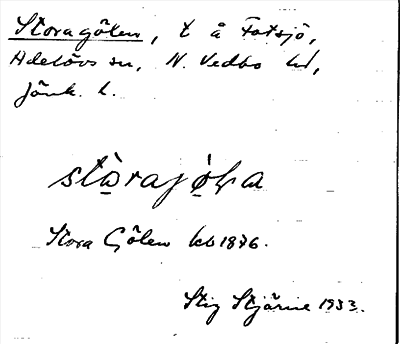 Storagölen, t å Fotsjö,
Adelövs sn, N. Vedbo hd,
Jönk. l.
stò̱rajö̱́ḷa
Stora Gölen kb 1876.
Stig Stjärne 1933.